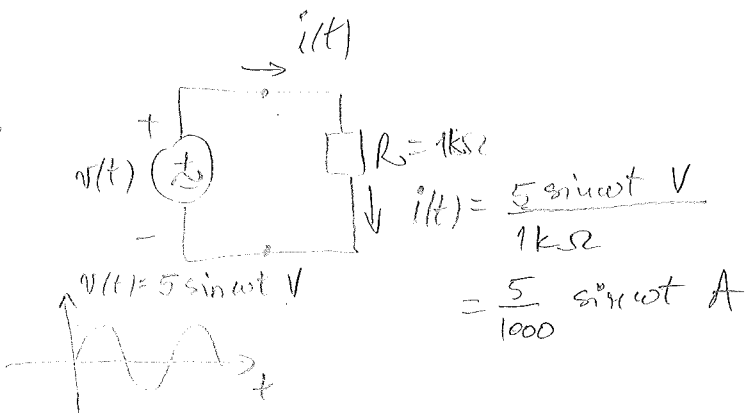 i(t)
+
v(t)
-
R = 1kΩ
i(t) = 5 sin ωt V
1kΩ
= 5
1000
sin ωt A
v(t) = 5 sin ωt V
t